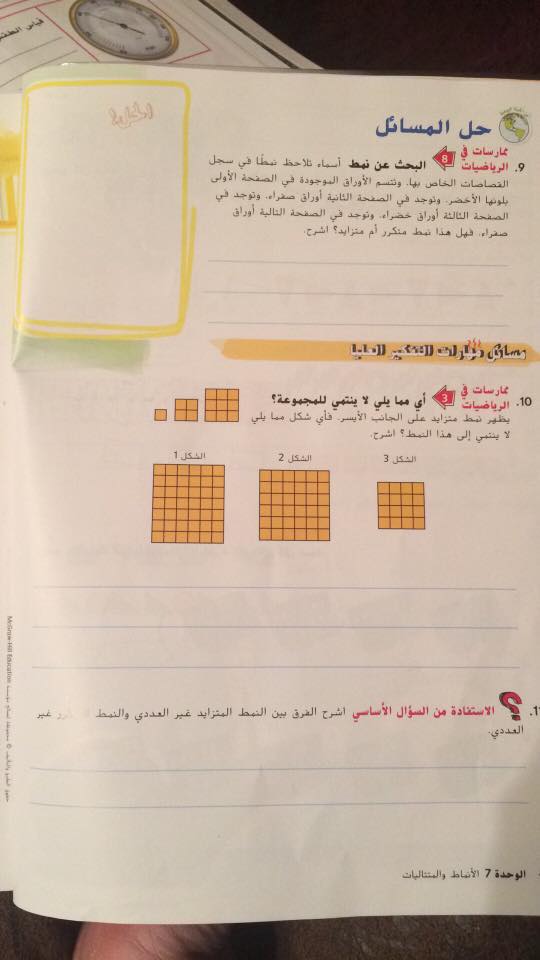 قياس الطقس
الحل!
حل المسائل
ممارسات في
الرياضيات
8
9. البحث عن نمط أسماء تلاحظ نمطًا في سجل
القصاصات الخاص بها. وتتسم الأوراق الموجودة في الصفحة الأولى
بلونها الأخضر. وتوجد في الصفحة الثانية أوراق صفراء. وتوجد في
الصفحة الثالثة أوراق خضراء. وتوجد في الصفحة التالية أوراق
صفراء. فهل هذا نمط متكرر أم متزايد؟ اشرح.
مسائل مهارات التفكير العليا
ممارسات في
الرياضيات
3
10. أي مما يلي لا ينتمي للمجموعة؟
يظهر نمط متزايد على الجانب الأيسر. فأي شكل مما يلي
لا ينتمي إلى هذا النمط؟ اشرح.
الشكل 1
الشكل 2
الشكل 3
11. الاستفادة من السؤال الأساسي اشرح الفرق بين النمط المتزايد غير العددي والنمط غير
العددي.
الوحدة 7 الأنماط والمتتاليات
McGraw-Hill Education